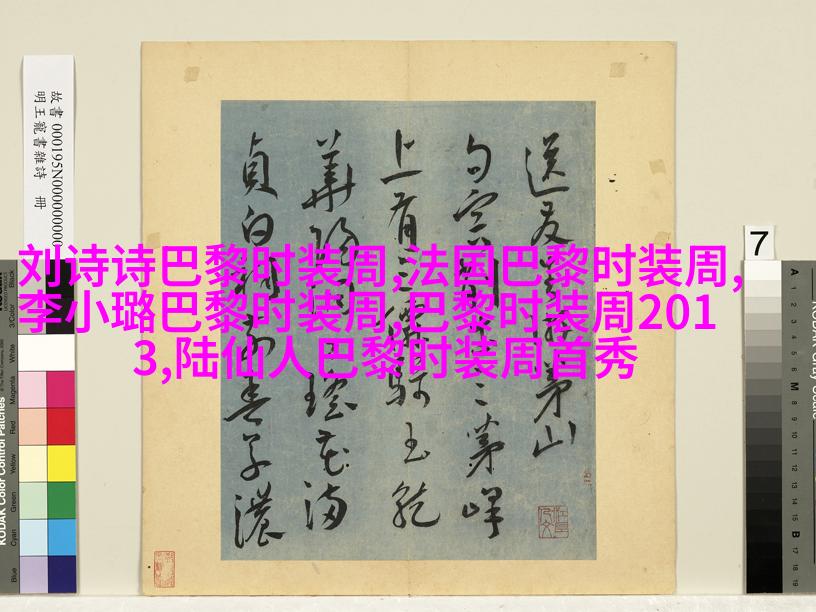 故書 000195N000000000
明王寵書雜詩 冊
刘诗诗巴黎时装周,法国巴黎时装周,
李小璐巴黎时装周,巴黎时装周201
3,陆仙人巴黎时装周首秀
送友茅山
句三茅峰
上有三僊騎玉
華陽瑤花滿
貞白祠前芳草濃
7
KODAK Color Control Patches
Black
3/Color
White
Magenta
Red
Yellow
Green
Cyan
Blue
A 1 2 3 4 5 6 M 8 9 10 11 12 13 14 15 B 17 18 19